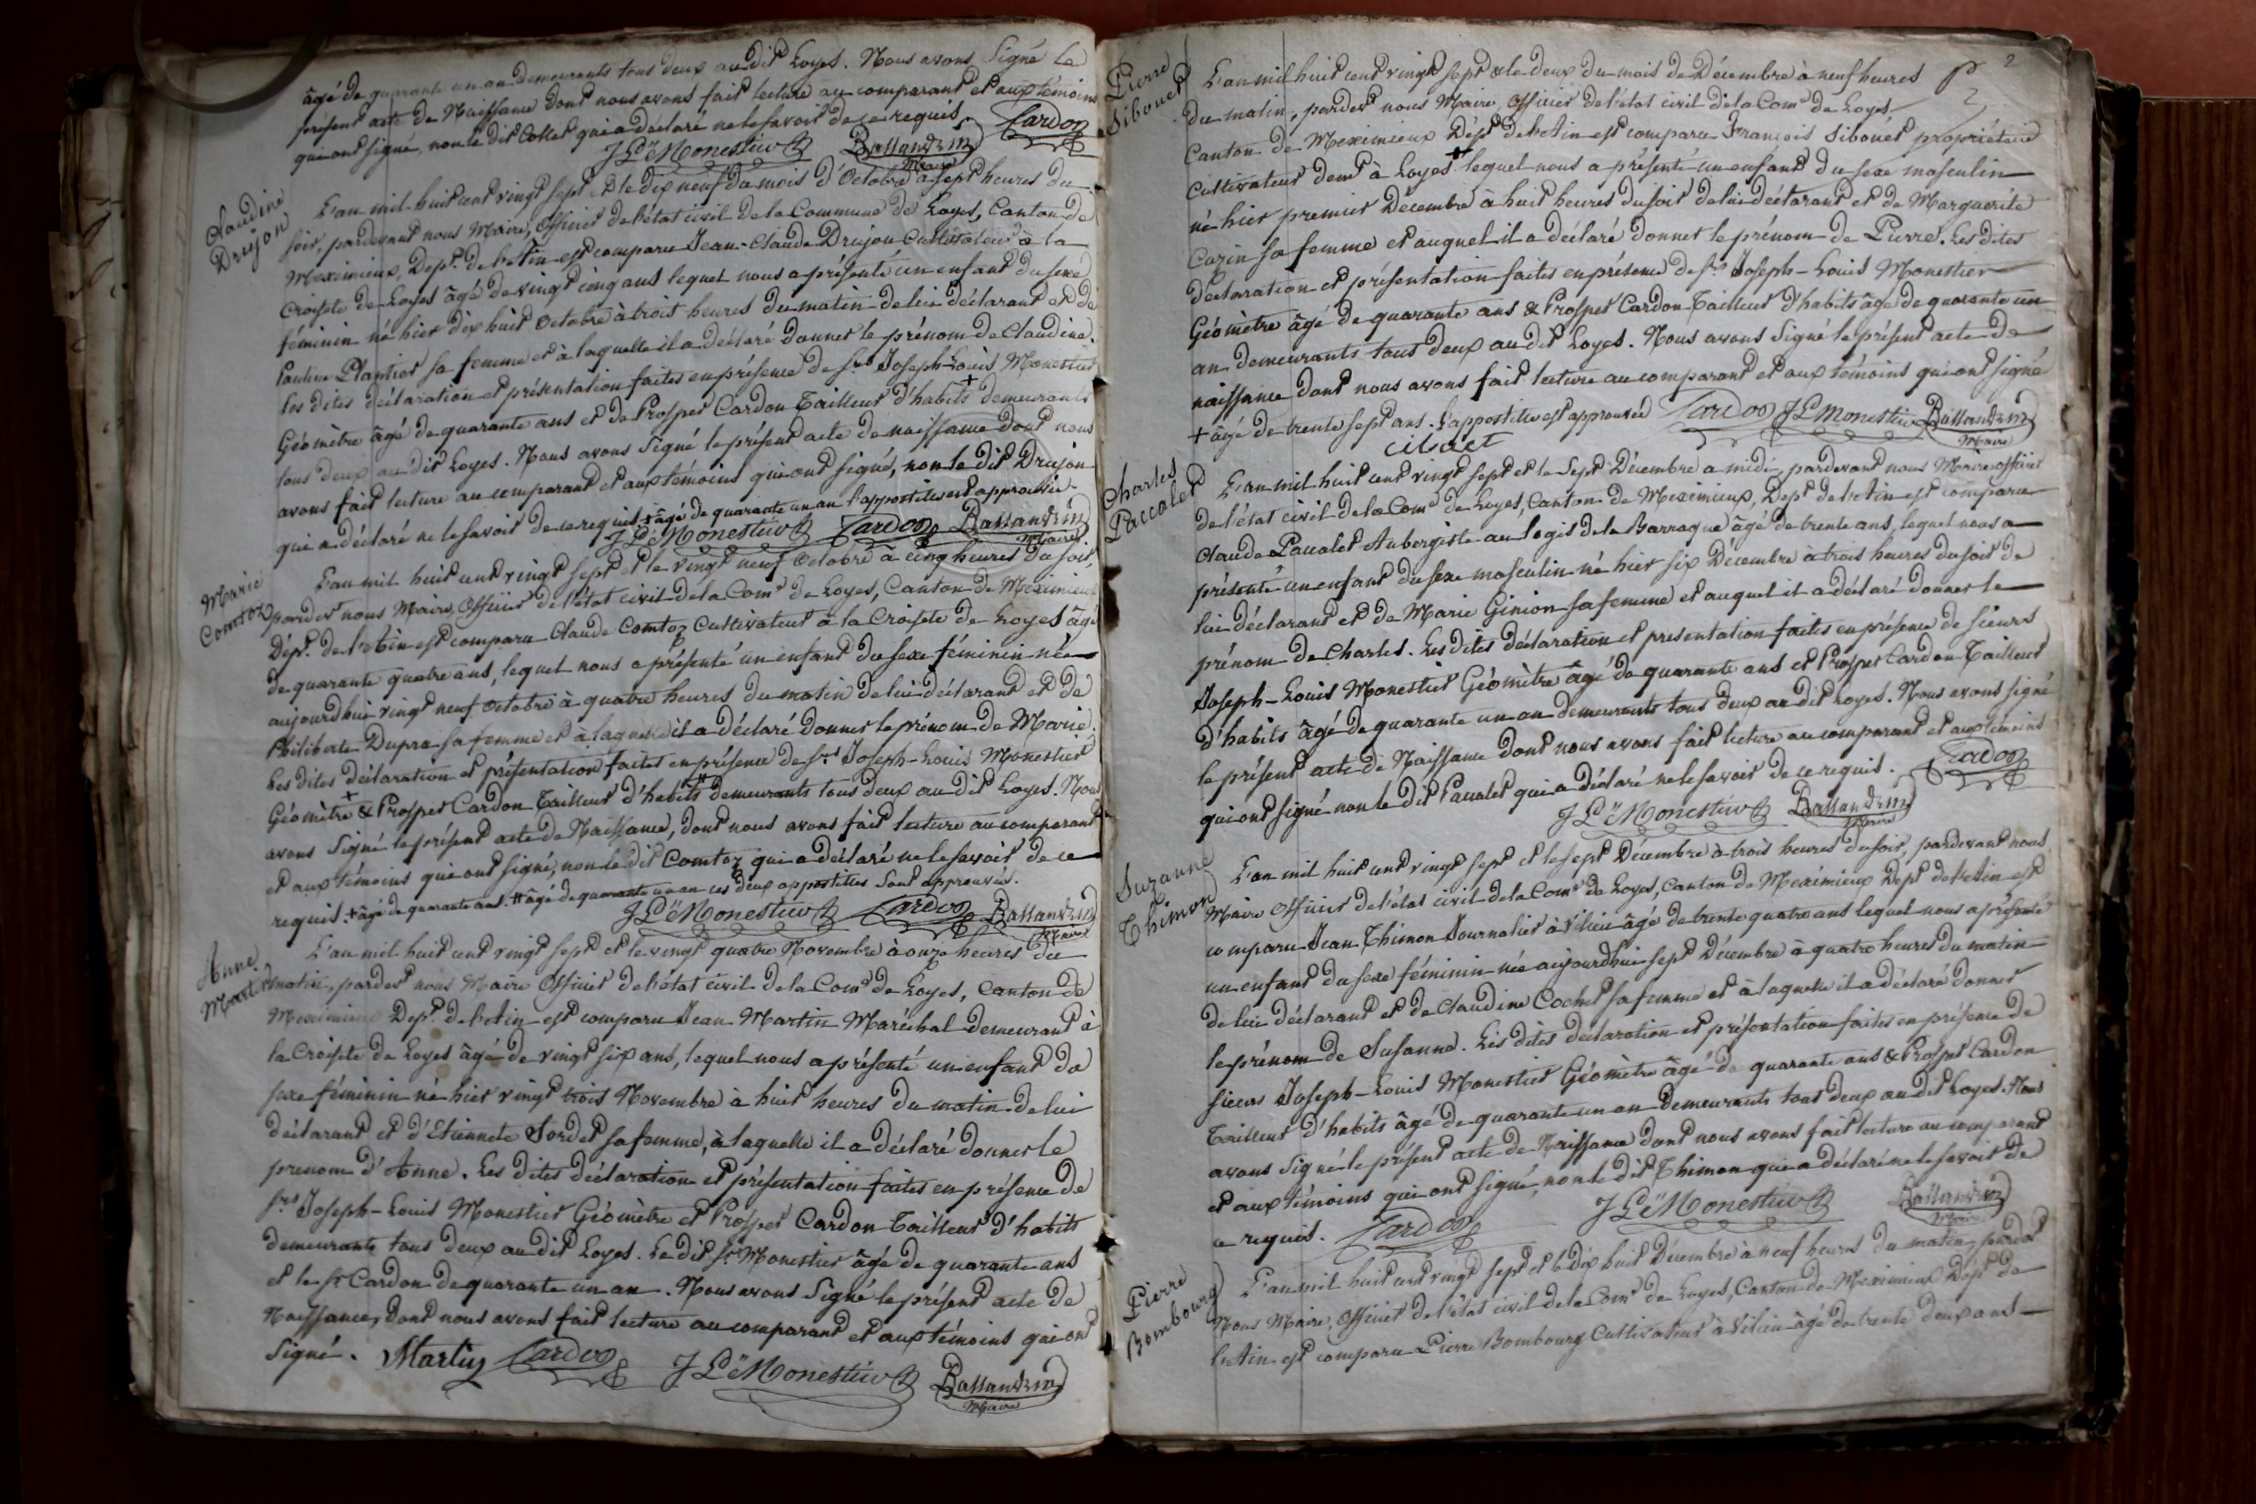 âgé de quarante un an demeurants tous deux au dit Loyes. Nous avons Signé le
présent acte de Naissance dont nous avons fait lecture au comparant et aux témoins
qui ont signé, non le dit Collet qui a déclaré ne le savoir de ce requis. Cardon
J Ls Monestier Ballandrin
Maire
Claudine
Drujon
L'an mil huit cent vingt sept et le dix neuf du mois d'Octobre à sept heures du
soir, pardevant nous Maire, Officier de l'état civil de la Commune de Loyes, Canton de
Meximieux, Dépt. de l'Ain est comparu Jean-Claude Drujon Cultivateur à la
Croisete de Loyes âgé de vingt cinq ans lequel nous a présenté un enfant du sexe
féminin né hier dix huit Octobre à trois heures du matin de lui déclarant et de
Pauline Plantier sa femme et à laquelle il a déclaré donner le prénom de Claudine.
Les dites déclaration et présentation faites en présence de Srs Joseph-Louis Monestier
Géomètre âgé de quarante ans et de Prosper Cardon Tailleur d'habits + demeurants
tous deux au dit Loyes. Nous avons Signé le présent acte de naissance dont nous
avons fait lecture au comparant et aux témoins qui ont signé, non le dit Drujon
qui a déclaré ne le savoir de ce requis + âgé de quarante un an l'appostille est approuvée.
J Ls Monestier Cardon Ballandrin
Maire
Marie
Comtoz
L'an mil huit cent vingt sept et le vingt neuf Octobre à cinq heures du soir,
pardet nous Maire, Officier de l'état civil de la Come de Loyes, Canton de Meximieux
Dépt. de l'Ain est comparu Claude Comtoz Cultivateur à la Croisete de Loyes âgé
de quarante quatre ans, lequel nous a présenté un enfant du sexe féminin née
aujourdhui vingt neuf Octobre à quatre heures du matin de lui déclarant et de
Philiberte Dupra sa femme et à laquelle il a déclaré donner le prénom de Marie.
Les dites déclaration et présentation faites en présence de Srs Joseph-Louis Monestier
Géomètre + & Prosper Cardon Tailleur d'habits # demeurants tous deux au dit Loyes. Nous
avons Signé le présent acte de Naissance, dont nous avons fait lecture au comparant
et aux témoins qui ont signé, non le dit Comtoz qui a déclaré ne le savoir de ce
requis. + âgé de quarante ans. # âgé de quarante un an ces deux appostilles sont approuvées.
J Ls Monestier Cardon Ballandrin
Maire
Anne
Martin
L'an mil huit cent vingt sept et le vingt quatre Novembre à onze heures du
matin, pardet nous Maire Officier de l'état civil de la Come de Loyes, Canton de
Meximieux Dépt. de l'Ain est comparu Jean Martin Maréchal demeurant à
la Croisete de Loyes âgé de vingt six ans, lequel nous a présenté un enfant du
sexe féminin né hier vingt trois Novembre à huit heures du matin de lui
déclarant et d'Etiennete Sordet sa femme, à laquelle il a déclaré donner le
prenom d'Anne. Les dites déclaration et présentation faites en présence de
Srs Joseph-Louis Monestier Géomètre et Prosper Cardon Tailleur d'habits
demeurants tous deux au dit Loyes. Le dit Sr Monestier âgé de quarante ans
et le Sr Cardon de quarante un an. Nous avons Signé le présent acte de
Naissance, dont nous avons fait lecture au comparant et aux témoins qui ont
Signé. Martin Cardon J Ls Monestier Ballandrin
Maire
2
Pierre
Sibouet
L'an mil huit cent vingt sept & le deux du mois de Décembre à neuf heures
du matin, pardet nous Maire, Officier de l'état civil de la Come de Loyes
Canton de Meximieux Dépt de l'Ain est comparu François Sibouet propriétaire
Cultivateur demt à Loyes + lequel nous a présenté un enfant du sexe masculin
né hier premier Décembre à huit heures du soir de lui déclarant et de Marguerite
Carin sa femme et auquel il a déclaré donner le prénom de Pierre. Les dites
déclaration et présentation faites en présence de Srs Joseph-Louis Monestier
Géomètre âgé de quarante ans & Prosper Cardon Tailleur d'habits âgé de quarante un
an demeurants tous deux au dit Loyes. Nous avons Signé le présent acte de
naissance dont nous avons fait lecture au comparant et aux témoins qui ont signé
+ âgé de trente sept ans. L'appostille est approuvée Cardon J L Monestier Ballandrin
Maire
Charles
Paccalet
L'an mil huit cent vingt sept et le sept Décembre à midi, pardevant nous Maire officier
de l'état civil de la Come de Loyes, Canton de Meximieux, Dept de l'Ain est comparu
Claude Paccalet Aubergiste au logis de la Barraque âgé de trente ans, lequel nous a
présenté un enfant du sexe masculin né hier six Décembre à trois heures du soir de
lui déclarant et de Marie Ginion sa femme et auquel il a déclaré donner le
prénom de Charles. Les dites déclaration et presentation faites en présence de sieurs
Joseph-Louis Monestier Géomètre âgé de quarante ans et Prosper Cardon Tailleur
d'habits âgé de quarante un an demeurants tous deux au dit Loyes. Nous avons signé
le présent acte de Naissance dont nous avons fait lecture au comparant et aux témoins
qui ont signé non le dit Paccalet qui a déclaré ne le savoir de ce requis. Cardon
J Ls Monestier Ballandrin
Maire
Suzanne
Thimon
L'an mil huit cent vingt sept et le sept Décembre à trois heures du soir, pardevant nous
Maire Officier de l'état civil de la Come de Loyes, Canton de Meximieux Dept de l'Ain est
comparu Jean Thimon Journalier à Vilieu âgé de trente quatre ans lequel nous a présenté
un enfant du sexe féminin née aujourdhui sept Décembre à quatre heures du matin
de lui déclarant et de Claudine Cochet sa femme et à laquelle il a déclaré donner
le prénom de Susanne. Les dites déclaration et présentation faites en présence de
sieurs Joseph-Louis Monestier Géomètre âgé de quarante ans & Prosper Cardon
Tailleur d'habits âgé de quarante un an demeurants tous deux au dit Loyes. Nous
avons signé le présent acte de Naissance dont nous avons fait lecture au comparant
et aux témoins qui ont signé, non le dit Thimon qui a déclaré ne le savoir de
ce requis. Cardon J Ls Monestier Ballandrin
Maire
Pierre
Bombourg
L'an mil huit cent vingt sept et le dix huit Décembre à neuf heures du matin, pardet
Nous Maire, Officier de l'état civil de la Come de Loyes, Canton de Meximieux Dépt de
l'Ain est comparu Pierre Bombourg Cultivateur à Vilieu âgé de trente deux ans